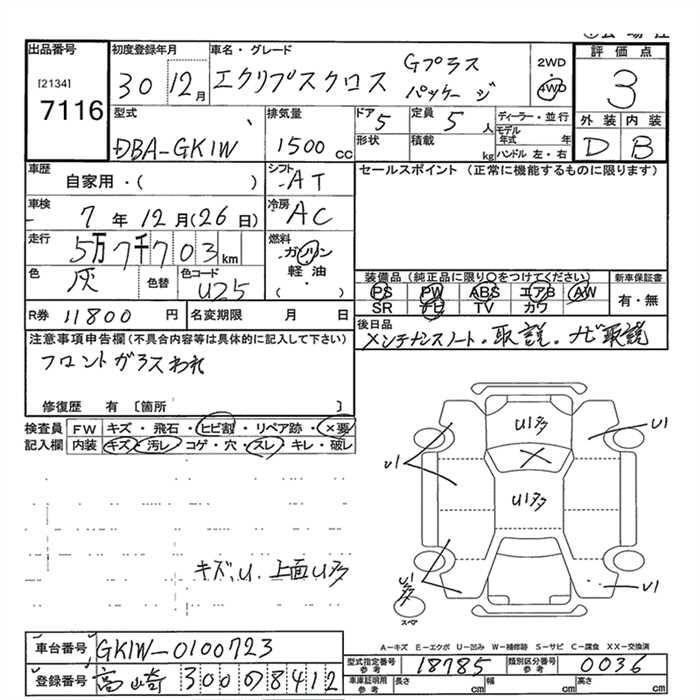 出品番号
[2134]
7116
初度登録年月
30 12月
車名・グレード
エクリプスクロス Gプラスパッケージ
2WD
4WD
評価点
3
外装 内装
D B
型式
DBA-GK1W
排気量
1500 cc
ドア 5
形状
定員 5 人
積載 kg
ディーラー・並行
モデル年式 年
ハンドル 左・右
車歴
自家用・( )
シフト AT
セールスポイント (正常に機能するものに限ります)
車検
7年12月(26日)
冷房 AC
走行
5万7千703km
燃料
ガソリン
軽油
( )
色
灰
色替
色コード
U25
装備品 (純正品に限り○をつけてください)
PS PW ABS エアB AW
SR ナビ TV カワ
新車保証書
有・無
R券 11800円
名変期限 月 日
後日品
メンテナンスノート.取説.ナビ取説
注意事項申告欄(不具合内容等は具体的に記入して下さい)
フロントガラスわれ
修復歴 有 〔箇所 〕
検査員記入欄
FW キズ・飛石・ヒビ割・リペア跡・×要
内装 キズ・汚レ・コゲ・穴・スレ・キレ・破レ
キズ、U.上面U多
U1多
U1
U1
U1多
U1
U1多
スペア
A-キズ E-エクボ U-凹み W-補修跡 S-サビ C-腐食 XX-交換済
車台番号 GK1W-0100723
登録番号 高崎 300 の 8412
型式指定番号 参考 18785
類別区分番号 参考 0036
車庫証明用 参考 長さ cm 幅 cm 高さ cm